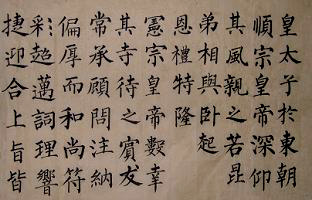 皇太子於東朝
順宗皇帝深仰
其風親之若昆
弟相與卧起
恩禮特隆
憲宗皇帝數幸
其寺待之賓友
常承顧問注納
偏厚而和尚符
彩超邁詞理響
捷迎合上旨皆